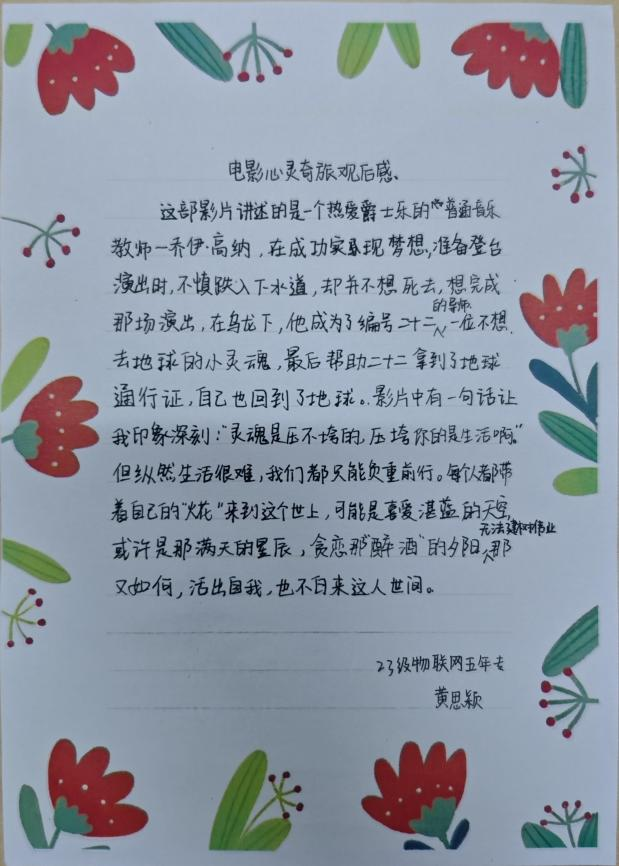 电影心灵奇旅观后感、
这部影片讲述的是一个热爱爵士乐的普通音乐
教师一乔伊·高纳，在成功实现梦想，准备登台
演出时，不慎跌入下水道，却并不想死去，想完成
那场演出，在乌龙下，他成为了编号二十二的导师，一位不想
去地球的小灵魂，最后帮助二十二拿到了地球
通行证，自己也回到了地球。影片中有一句话让
我印象深刻："灵魂是压不垮的，压垮你的是生活啊。"
但纵然生活很难，我们都只能负重前行。每个人都带
着自己的"火花"来到这个世上，可能是喜爱湛蓝的天空，
或许是那满天的星辰，贪恋那"醉酒"的夕阳，无法建树伟业那
又如何，活出自我，也不白来这人世间。
23级物联网五年专
黄思颖